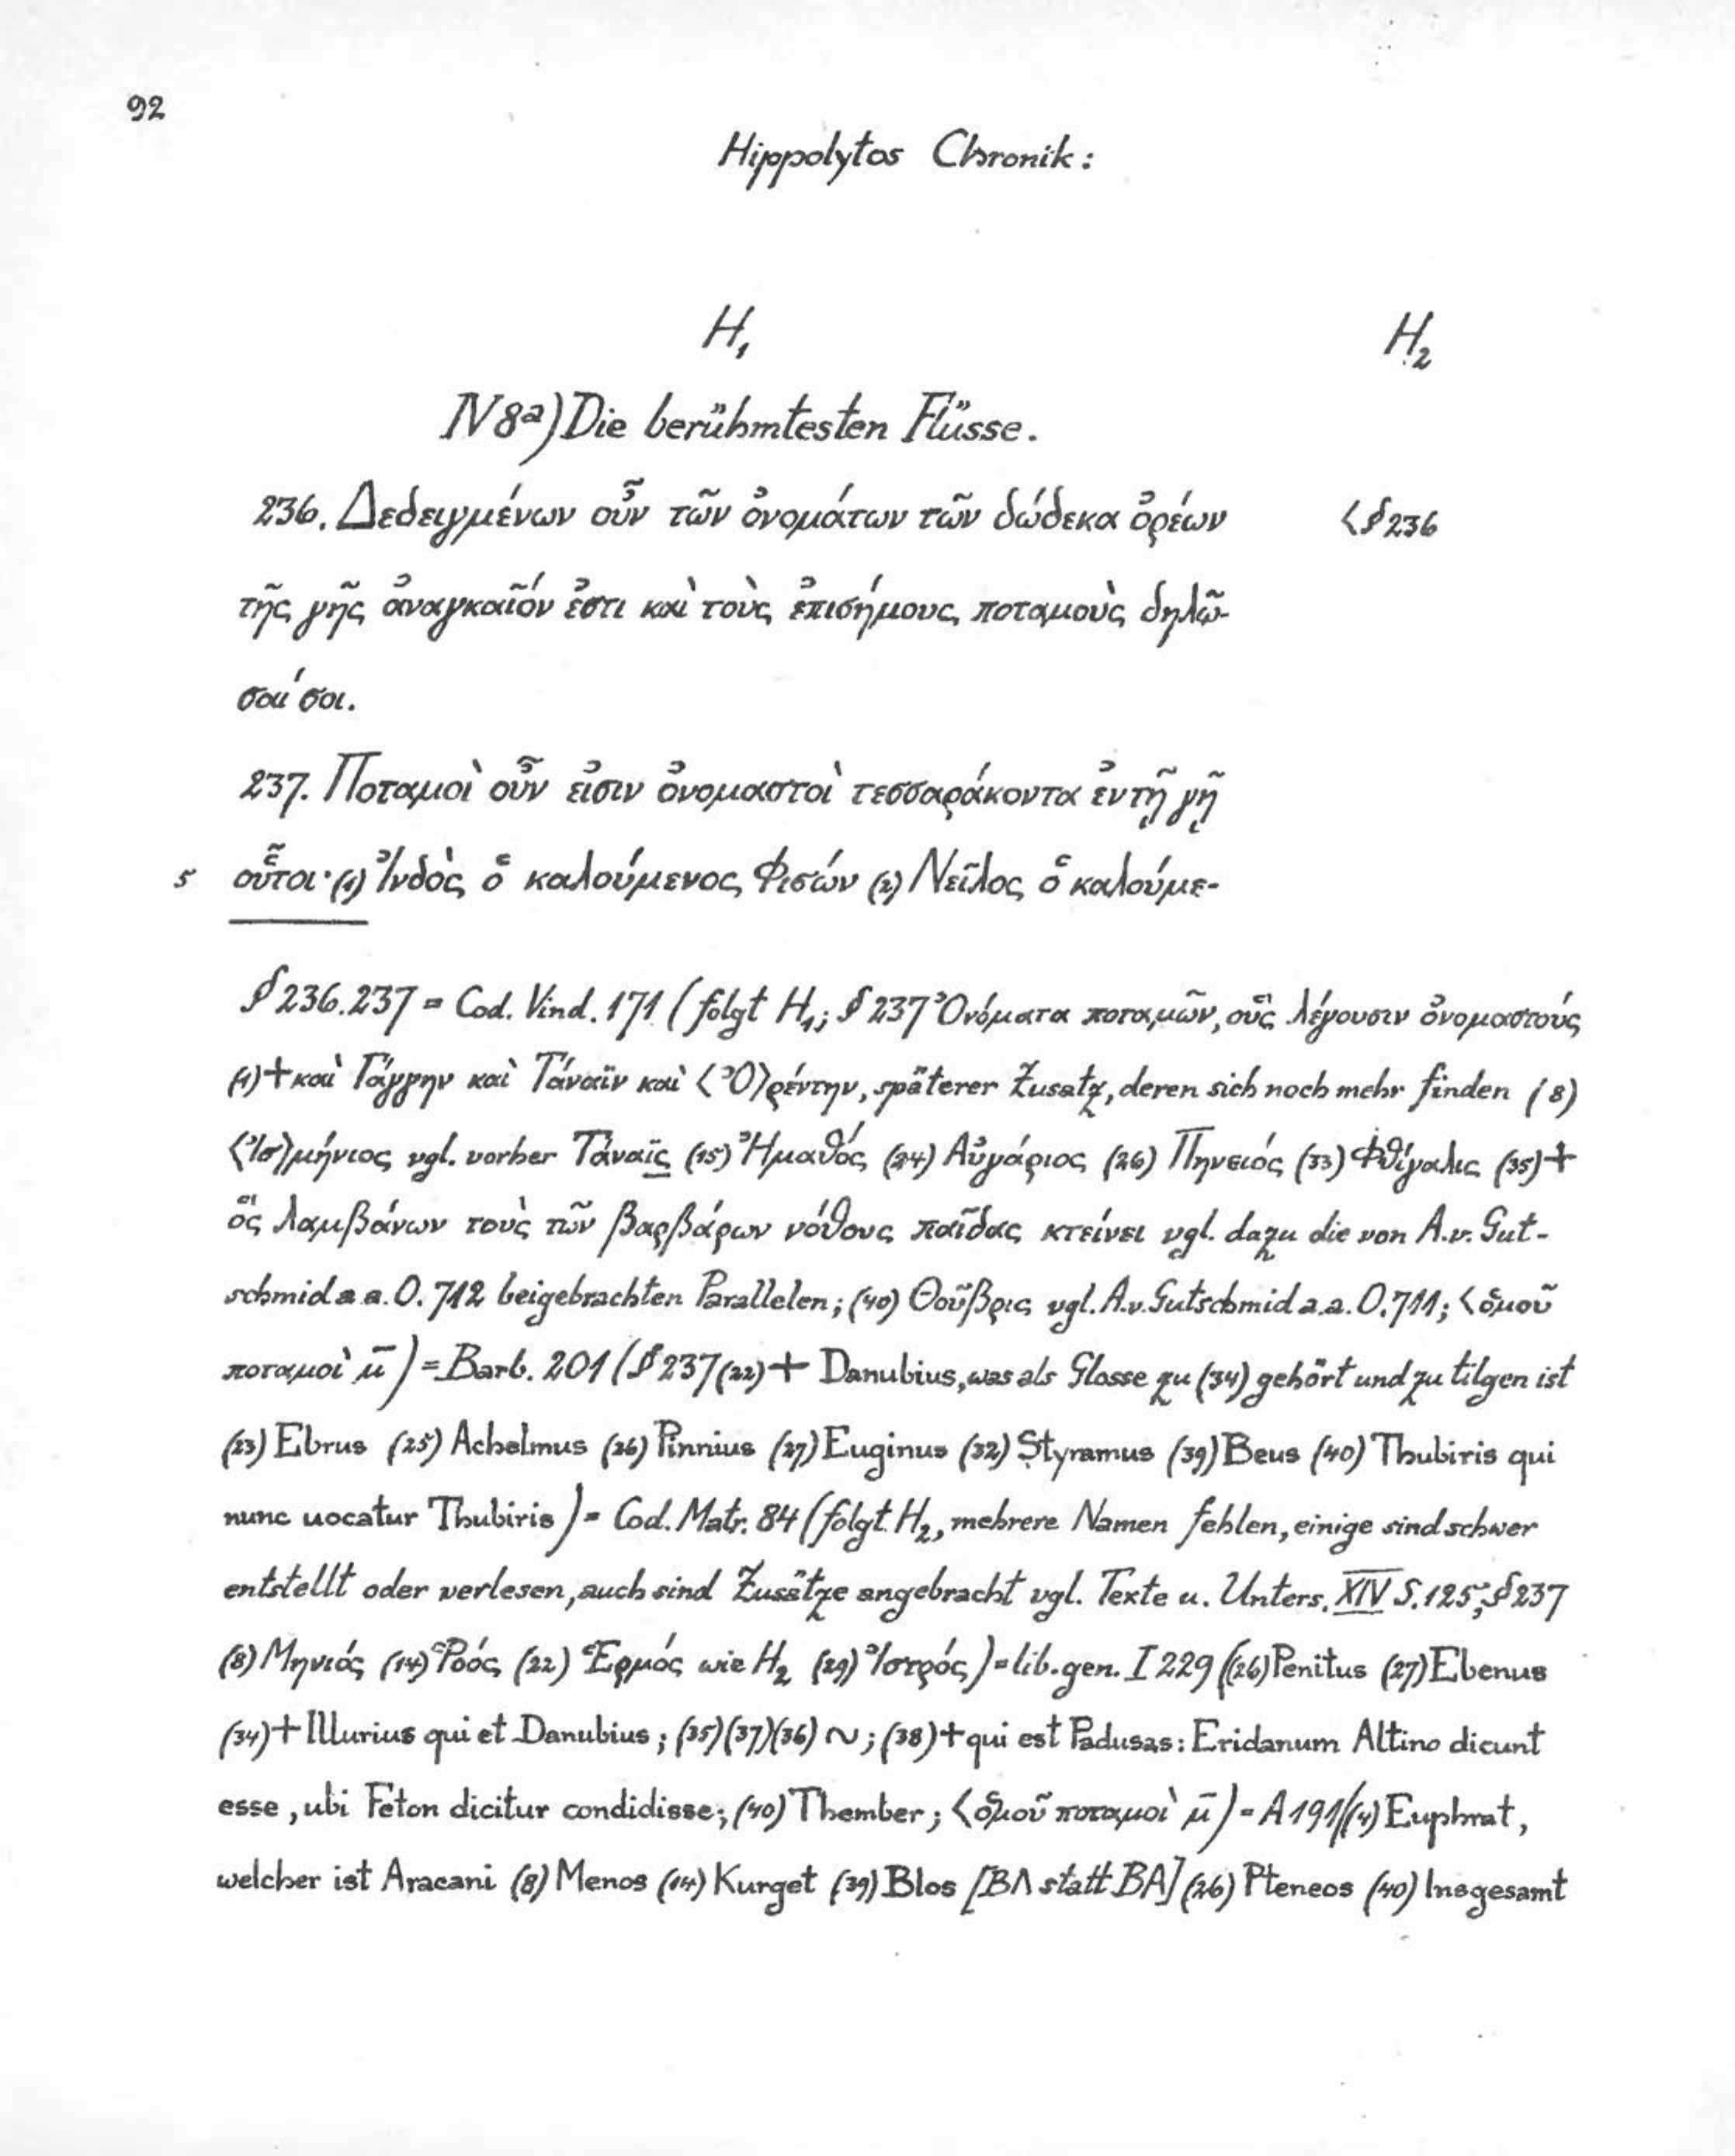 92
Hippolytos Chronik:
H₁ H₂
IV 8a) Die berühmtesten Flüsse.
236. Δεδειγμένων οὖν τῶν ὀνομάτων τῶν δώδεκα ὀρέων <§ 236
τῆς γῆς ἀναγκαῖόν ἐστι καὶ τοὺς ἐπισήμους ποταμοὺς δηλῶ-
σαί σοι.
237. Ποταμοὶ οὖν εἰσιν ὀνομαστοὶ τεσσαράκοντα ἐν τῇ γῇ
5 οὗτοι· (1) Ἰνδὸς ὁ καλούμενος Φισών (2) Νεῖλος ὁ καλούμε-
§ 236.237 = Cod. Vind. 171 (folgt H₁; § 237 Ὀνόματα ποταμῶν, οὓς λέγουσιν ὀνομαστούς
(1) + καὶ Γάγγην καὶ Τάναϊν καὶ <Ὀ>ρέντην, späterer Zusatz, deren sich noch mehr finden (8)
<Ἰσ>μήνιος vgl. vorher Τάναϊς (15) Ἠμαθός (24) Αὐγάριος (26) Πηνειός (33) Φθίγαλις (35) +
ὃς λαμβάνων τοὺς τῶν βαρβάρων νόθους παῖδας κτείνει vgl. dazu die von A. v. Gut-
schmid a. a. O. 712 beigebrachten Parallelen; (40) Θοῦβρις vgl. A. v. Gutschmid a. a. O. 711; < ὁμοῦ
ποταμοὶ μ̄) = Barb. 201 (§ 237 (22) + Danubius, was als Glosse zu (34) gehört und zu tilgen ist
(23) Ebrus (25) Achelmus (26) Pinnius (27) Euginus (32) Styramus (39) Beus (40) Thubiris qui
nunc uocatur Thubiris) = Cod. Matr. 84 (folgt H₂, mehrere Namen fehlen, einige sind schwer
entstellt oder verlesen, auch sind Zusätze angebracht vgl. Texte u. Unters. XIV S. 125; § 237
(8) Μηνιός (14) Ῥοός (22) Ἑρμός wie H₂ (29) Ἰστρός) = lib. gen. I 229 ((26) Penitus (27) Ebenus
(34) + Illurius qui et Danubius; (35)(37)(36) ~; (38) + qui est Padusas: Eridanum Altino dicunt
esse, ubi Feton dicitur condidisse; (40) Thember; < ὁμοῦ ποταμοὶ μ̄) = A 191 ((4) Euphrat,
welcher ist Aracani (8) Menos (14) Kurget (39) Blos [ΒΛ statt ΒΑ] (26) Pteneos (40) Insgesamt